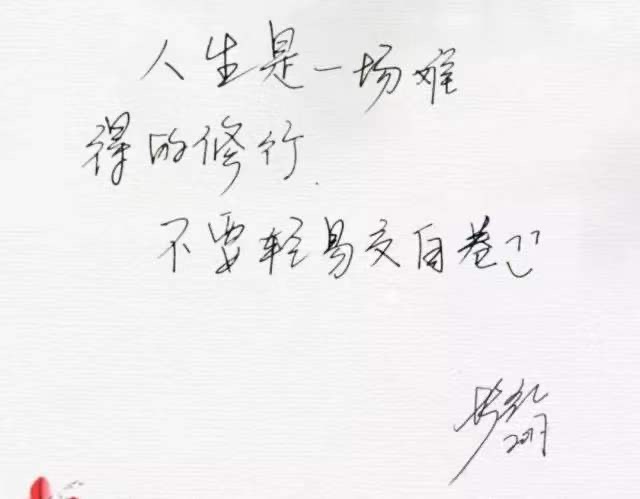 人生是一场难
得的修行.
不要轻易交白卷!!